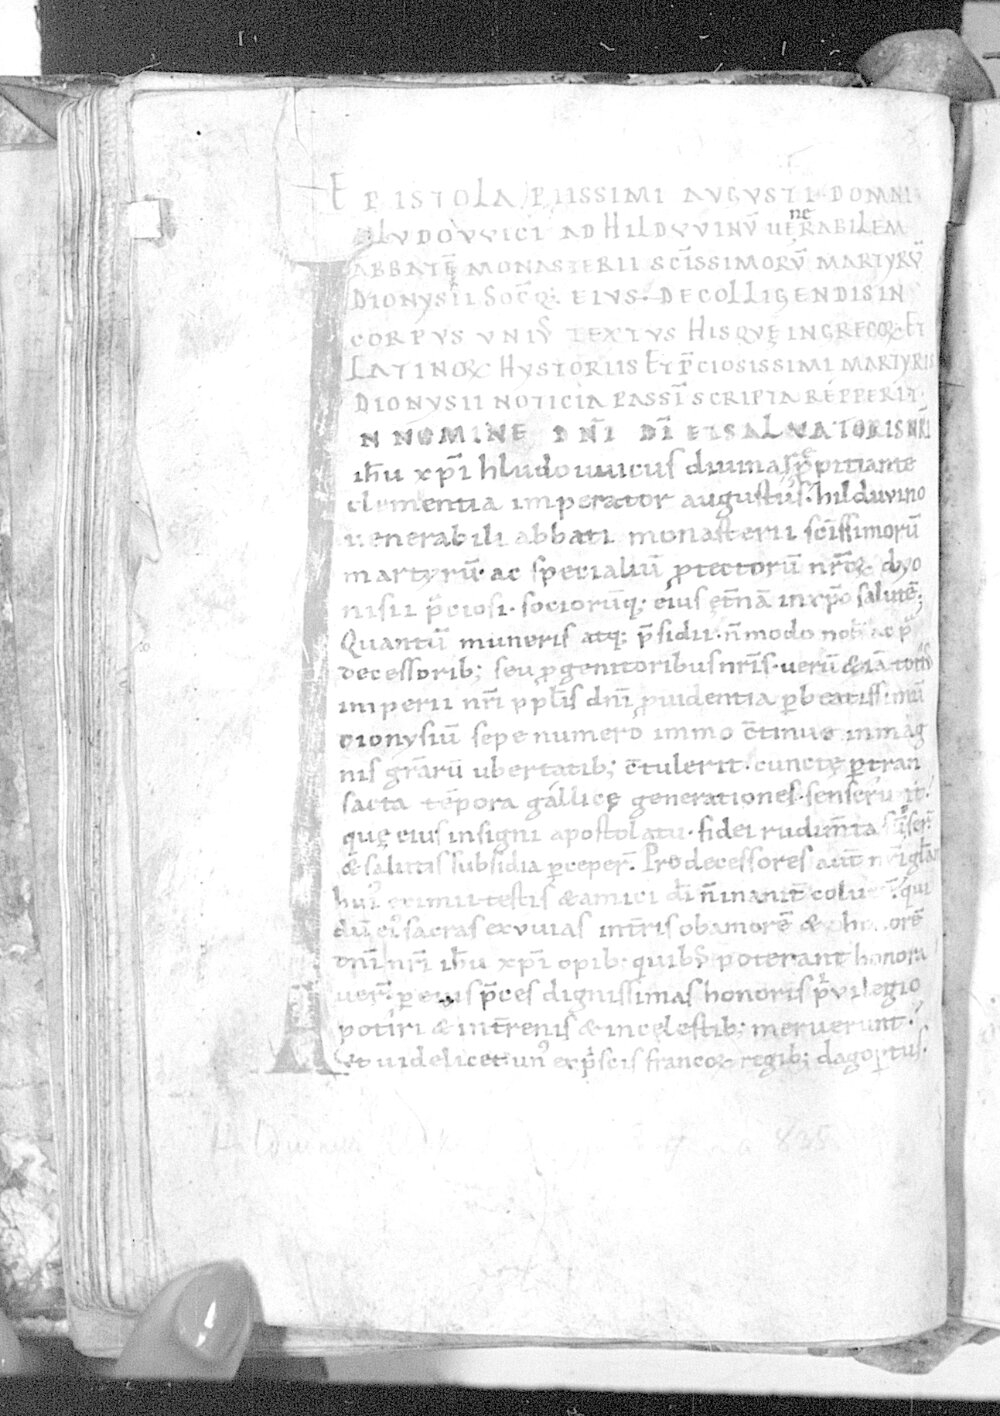 EPISTOLA PIISSIMI AUGUSTI DOMNI
LVDOVVICI AD HILDVVINŪ UENERABILEM
ABBATĒ MONASTERII SCĪSSIMORŪ MARTYRŪ
DIONYSII SOCŌQ; EIVS. DECOLLIGENDIS IN
CORPVS VNIꝰ TEXTVS HISQVĘ IN GRECOꝜ ET
LATINOꝜ HYSTORIIS ET P̄CIOSISSIMI MARTYRIS
DIONYSII NOTICIA PASSĪ SCRIPTA REPPERIT.
IN NOMINE DN̄I DĪ ET SALVATORIS NR̄I
ih̄u xp̄i hludouuicus diuina p̄pitiante
clementia imperator augustus. hilduvino
uenerabili abbati monasterii scīssimorū
martyrū. ac specialiū ꝓtectorū nr̄oꝝ dyo
nisii p̄ciosi. sociorūq; eius ęt̄nā inxp̄o salutē;
Quantū muneris atq; p̄sidii. n̄ modo nob̄ ac p̄
decessorib; seu ꝓgenitoribus nr̄is. uerū & iā totiꝰ
imperii nr̄i ppl̄is dn̄i ꝓuidentia ꝑ beatissimū
dionysiū sepe numero immo c̄tinue in mag
nis grārū ubertatib; c̄tulerit. cunctę ꝑtran
sacta tēpora gallicę generationes senserunt.
quę eius insigni apostolatu. fidei rudim̄ta
& salutis subsidia ꝑceper̄. Prodecessores aut̄ nr̄i
huiꝰ eximii testis & amici dī n̄ inanit̄ qui
dū eiꝰ sacras exuuias int̄ris ob amorē &
dn̄i nr̄i ih̄u xp̄i opib. quibꝰ poterant honora
uer̄. ꝑ eius p̄ces dignissimas honoris p̄vilegio
potiri & in t̄renis & in cęlestib; meruerunt.
Et uidelicet unꝰ ex p̄scis francoꝝ regib; dagoꝑtus.
835